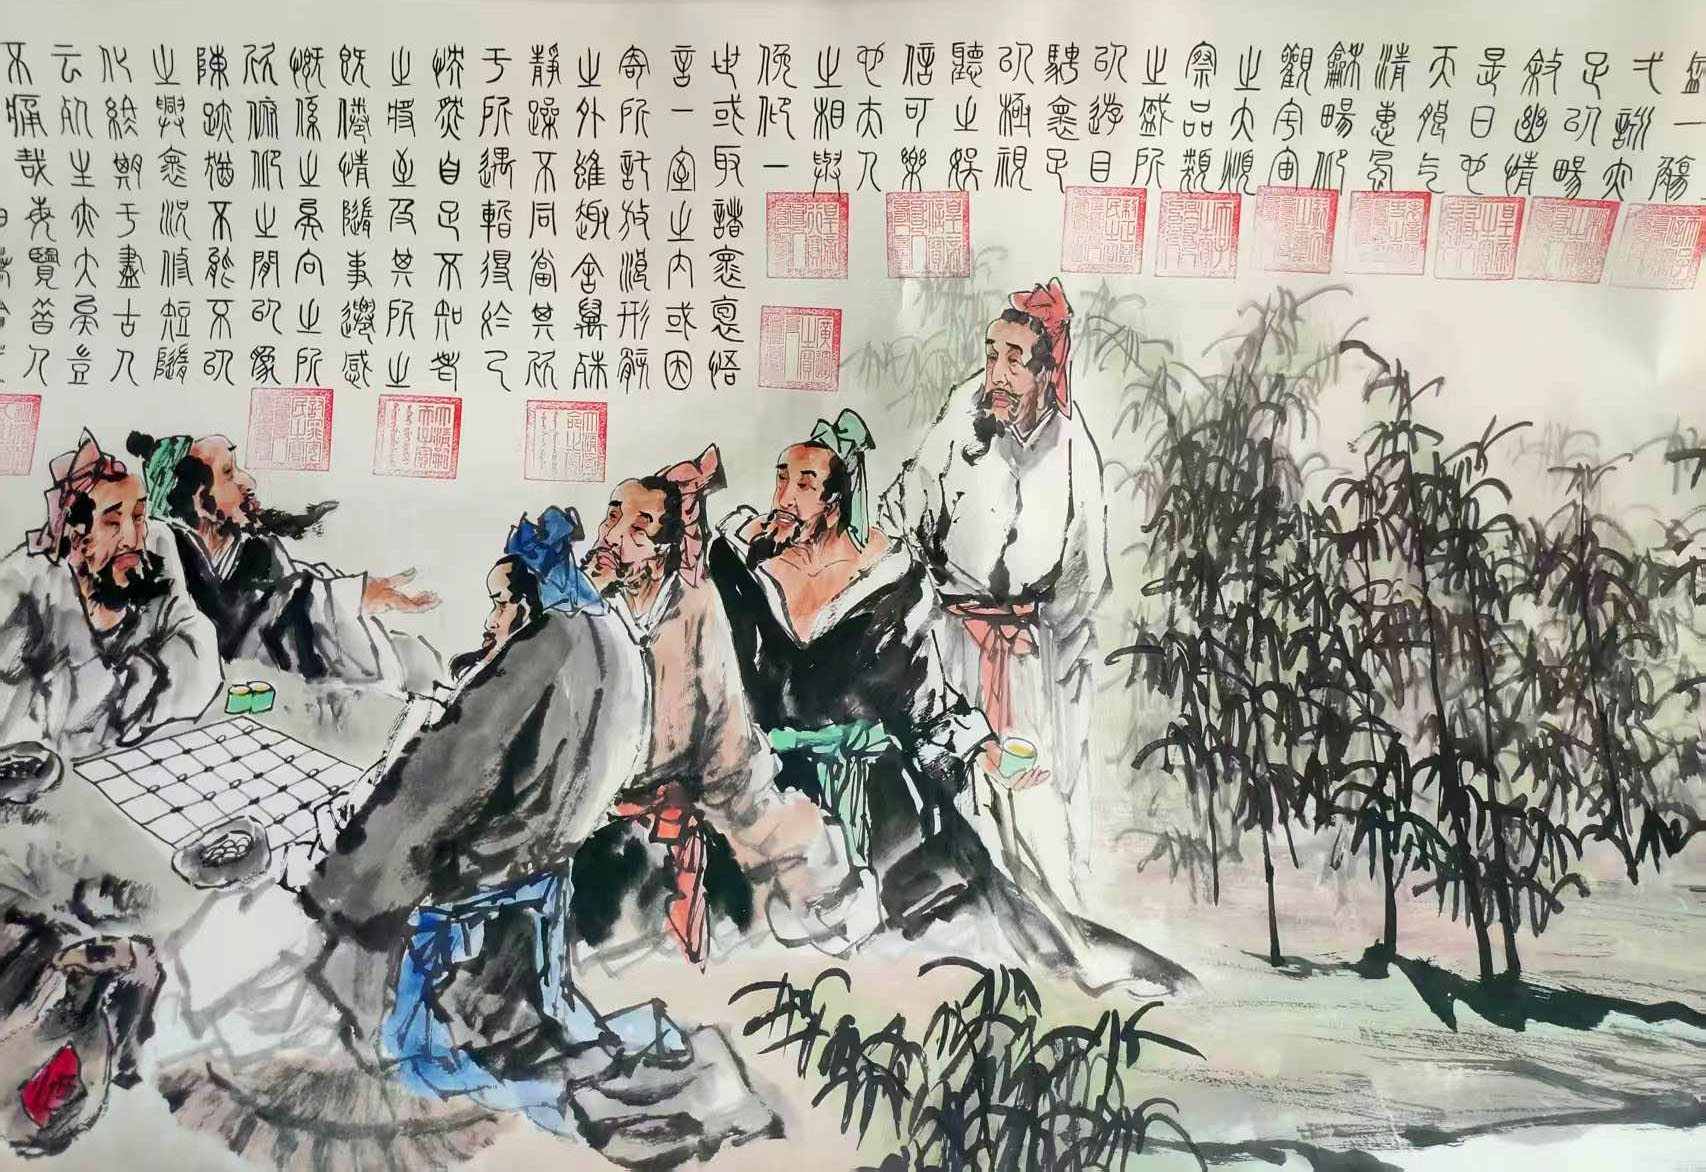 盛一觴
弌詠亦
足㠯暢
敘幽情
是日也
天朗气
清惠風
龢暢仰
觀宇宙
之大頫
察品類
之盛所
㠯遊目
騁懷足
㠯極視
聽之娛
信可樂
也夫人
之相與
俛仰一
世或取諸懷裒悟
言一室之內或因
寄所託放浪形骸
之外雖趣舍異殊
靜躁不同當其欣
于所遇暫得於己
怏然自足不知老
之將至及其所之
既倦情隨事遷感
慨係之矣向之所
欣俯仰之閒㠯為
陳迹猶不能不㠯
之興懷況修短隨
化終期于盡古人
云死生亦大矣豈
不痛哉每覽昔人